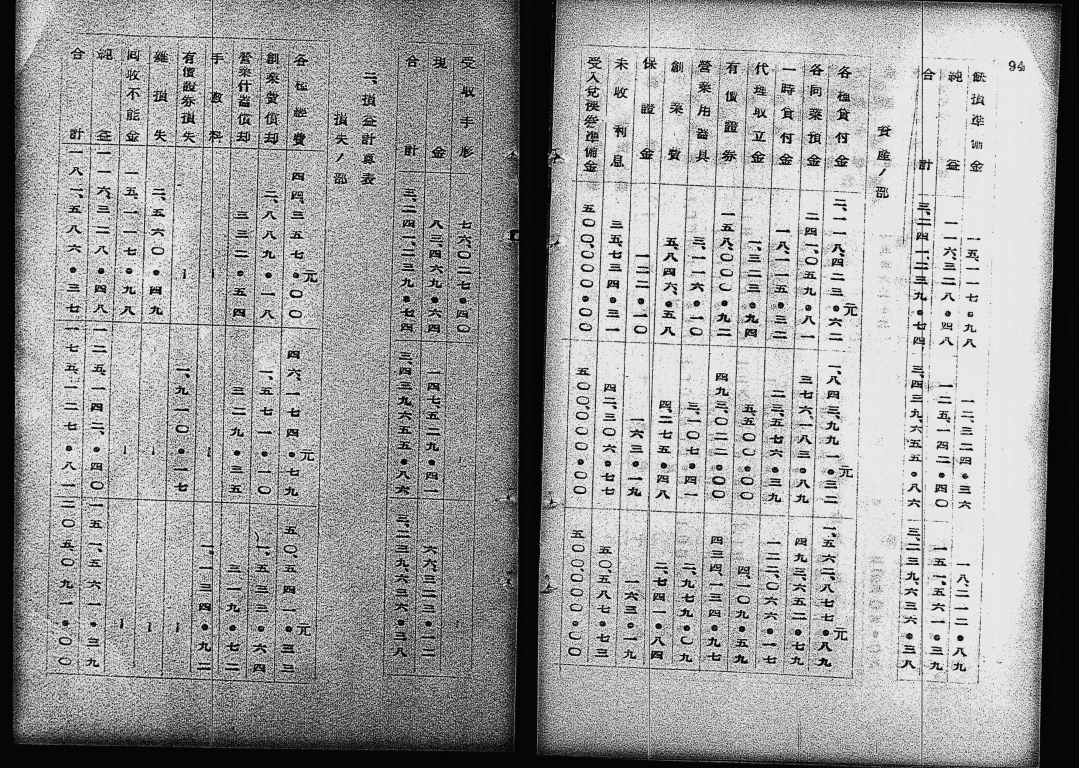 94
缺損準備金 一五、一一七・九八 一二、三二四・三六 一八、二一二・八九
純益 一一六、三二八・四八 一二五、一四二・四〇 一五一、五六一・三九
合計 三、二四一、二三九・七四 三、四三九、六五五・八六 三、二三九、六三六・三八
資産ノ部
各種貸付金 二、一一八、四二三・六二元 一、八四三、九九一・三二元 一、五六二、八七七・八九元
各同業預金 二四一、〇五九・八一 三七六、一八三・八九 四九三、六五二・七九
一時貸付金 一八、一一五・三二 二三、五七六・三九 一二〇、〇六六・一七
代理取立金 一、三二三・九四 五五〇・〇〇 四、一〇九・五九
有價證券 一五八、〇〇〇・九二 四九三、〇二二・〇〇 四三四、一三四・九七
營業用器具 三、一一六・一〇 三、一〇七・四一 二、九七九・〇九
創業費 五、八四六・五八 四、二七五・四八 二、七四一・八四
保證金 一二二・一〇 一六三・一九 一六三・一九
未收利息 三五、七三四・三一 四二、三〇六・七七 五〇、五八七・七三
受入兌換券準備金 五〇〇、〇〇〇・〇〇 五〇〇、〇〇〇・〇〇 五〇〇、〇〇〇・〇〇
受取手形 七六、〇二七・四〇
現金 八三、四六九・六四 一四七、五二九・四一 六六、三二三・一二
合計 三、二四一、二三九・七四 三、四三九、六五五・八六 三、二三九、六三六・三八
二、損益計算表
損失ノ部
各種經費 四四、三五七・〇〇元 四六、一七四・七九元 五〇、五四一・三三元
創業費償却 二、八八九・一八 一、五七一・一〇 一、五三三・六四
營業什器償却 三三二・五四 三二九・三五 三一九・七二
手數料 ー ー 一、一三四・九二
有價證券損失 ー 一、九一〇・一七 ー
雜損失 二、五六〇・四九 ー ー
回收不能金 一五、一一七・九八 ー ー
純益 一一六、三二八・四八 一二五、一四二・四〇 一五一、五六一・三九
合計 一八一、五八六・三七 一七五、一二七・八一 二〇五、〇九一・〇〇